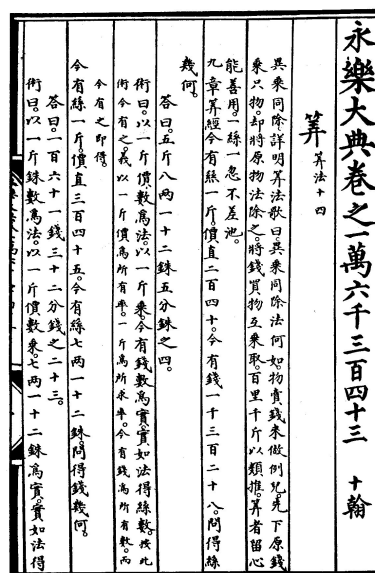 永樂大典卷之一萬六千三百四十三 十翰
筭 筭法十四
異乘同除詳明筭法歌曰異乘同除法何如。物賣錢來做例兒。先下原錢
乘只物。却將原物法除之。將錢買物互乘取。百里千斤以類推。筭者留心
能善用。一絲一忽不差池。
九章筭經今有絲一斤。價直二百四十。今有錢一千三百二十八。問得絲
幾何。
荅曰。五斤八兩一十二銖五分銖之四。
術曰。以一斤價數爲法。以一斤乘今有錢數爲實。實如法得絲數。按此
術今有之義。以一斤價爲所有率。一斤爲所求率。今有錢爲所有數。而
今有之即得。
今有絲一斤。價直三百四十五。今有絲七兩一十二銖。問得錢幾何。
荅曰。一百六十一錢三十二分錢之二十三。
術曰。以一斤銖數爲法。以一斤價數乘七兩一十二銖爲實。實如法得